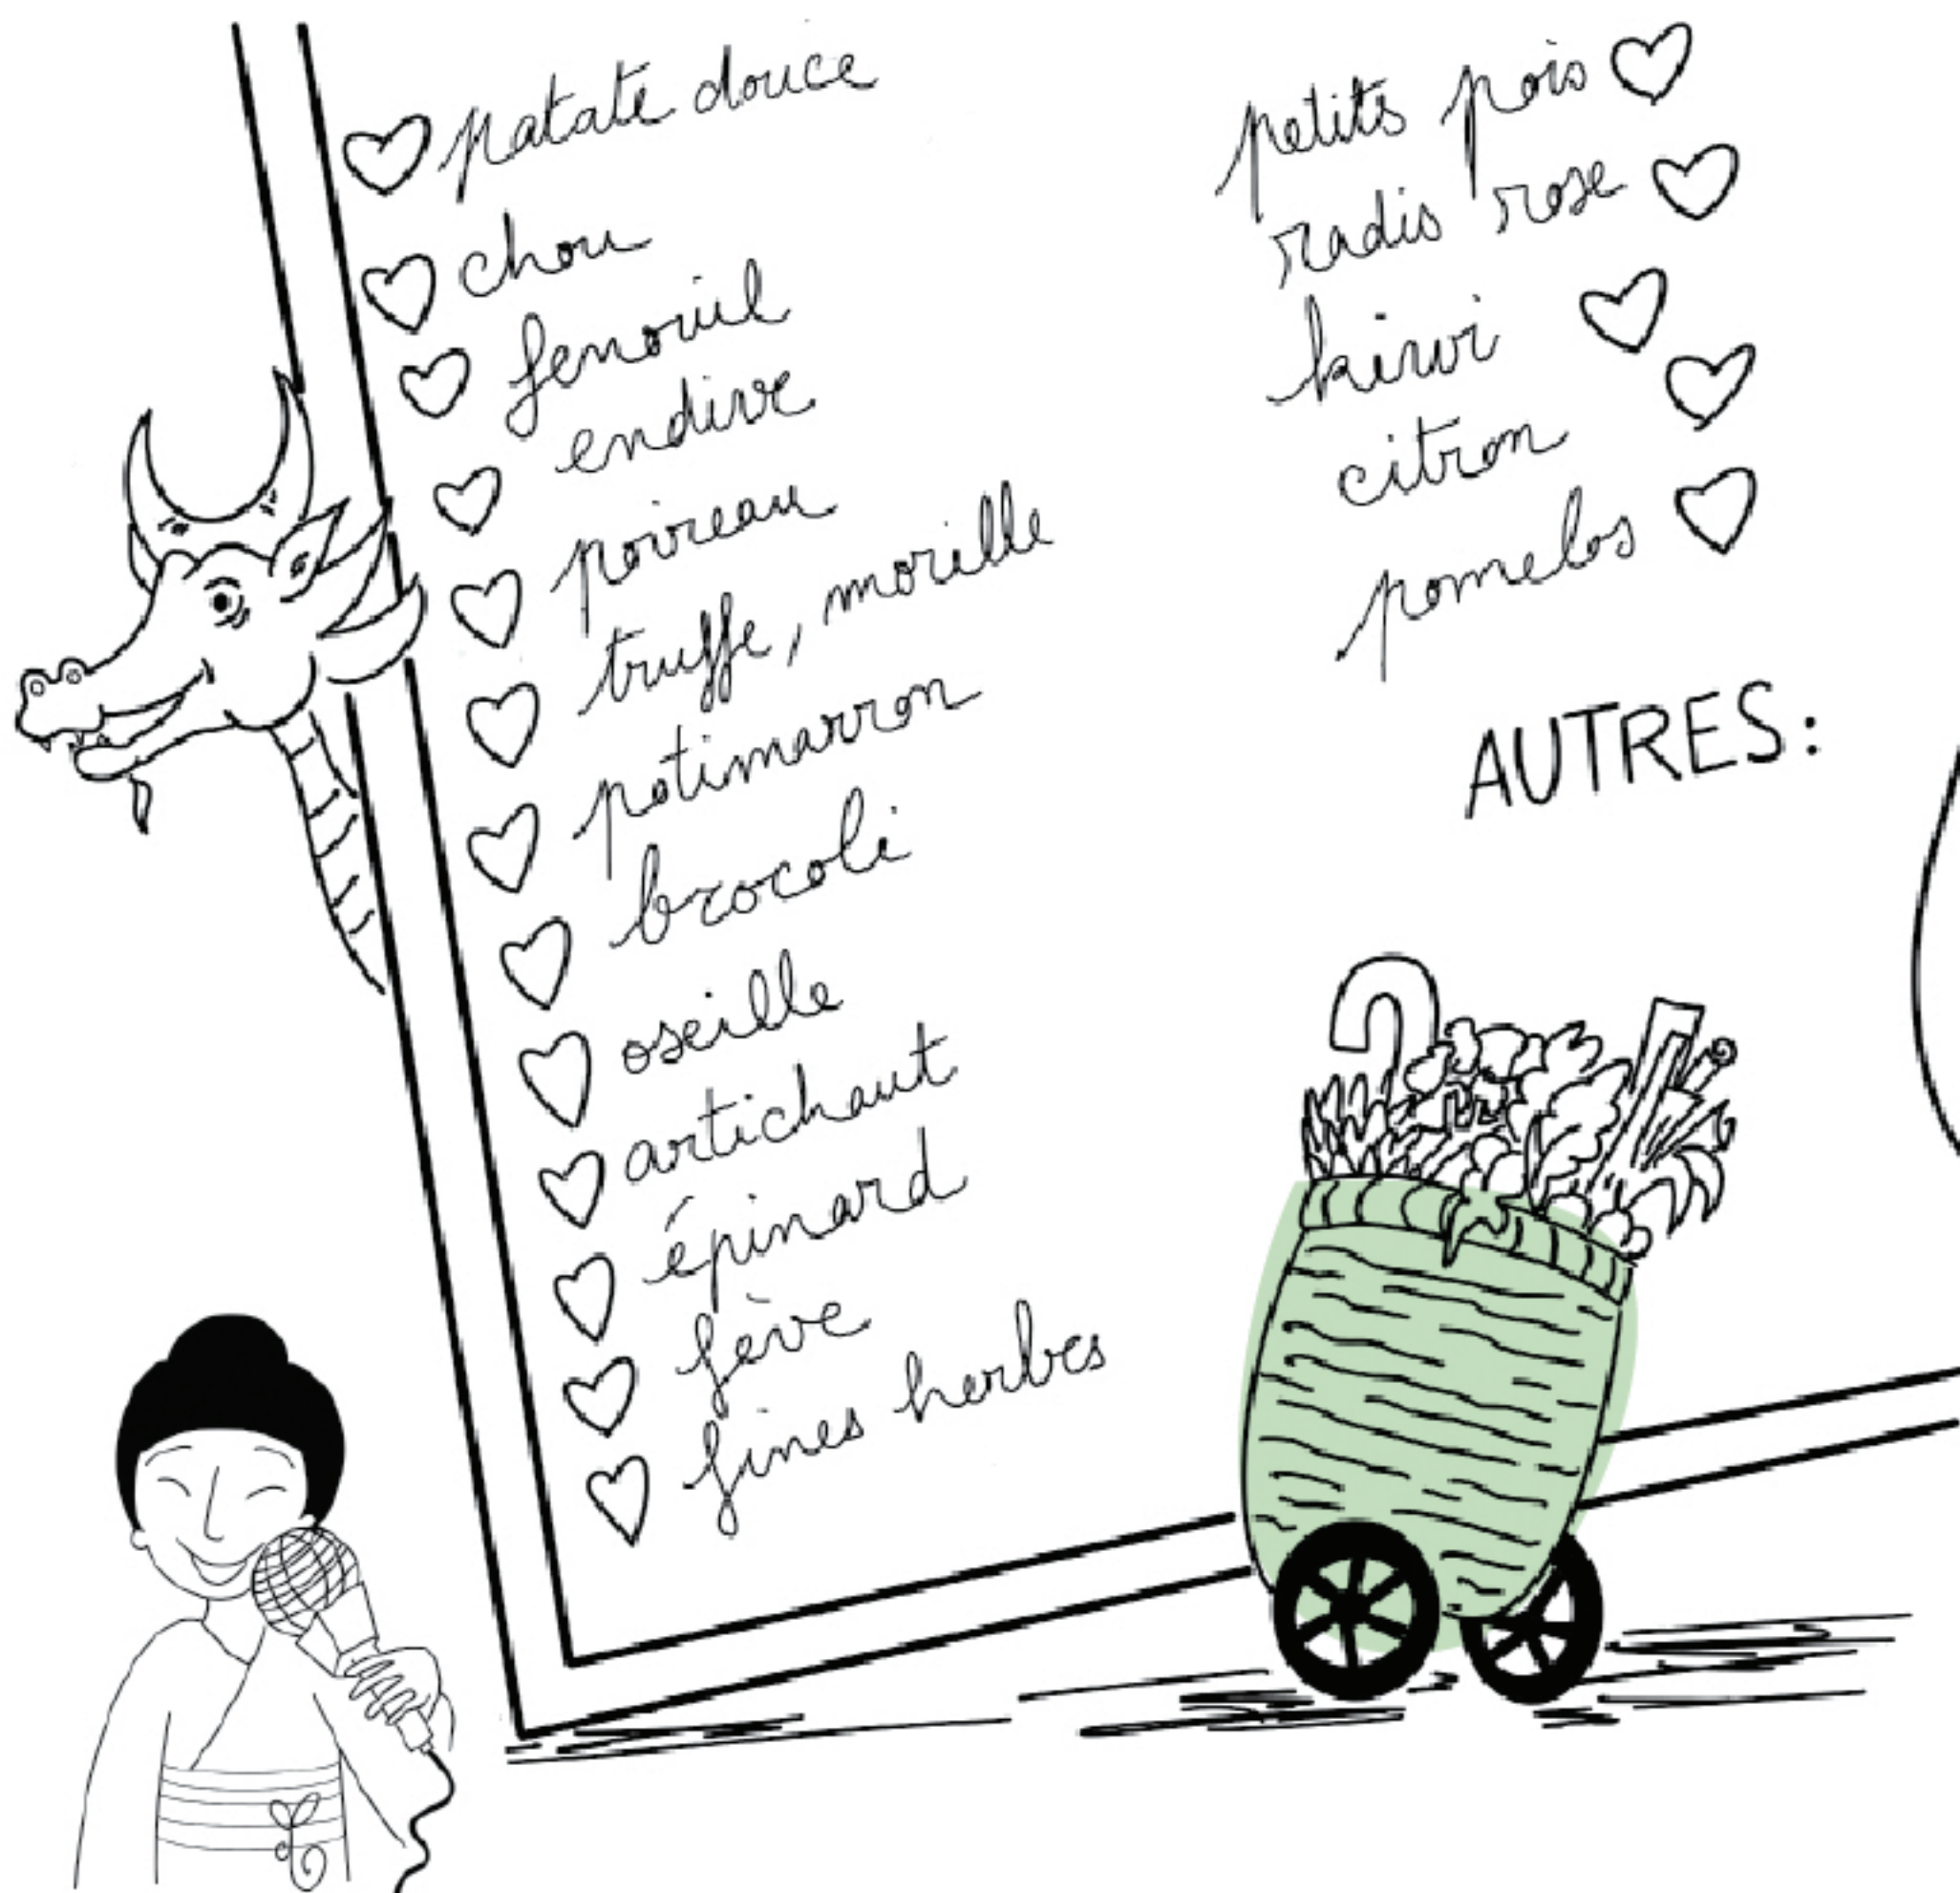 patate douce
chou
fenouil
endive
poireau
truffe, morille
potimarron
brocoli
oseille
artichaut
épinard
fève
fines herbes
petits pois
radis rose
kiwi
citron
pomelos
AUTRES: